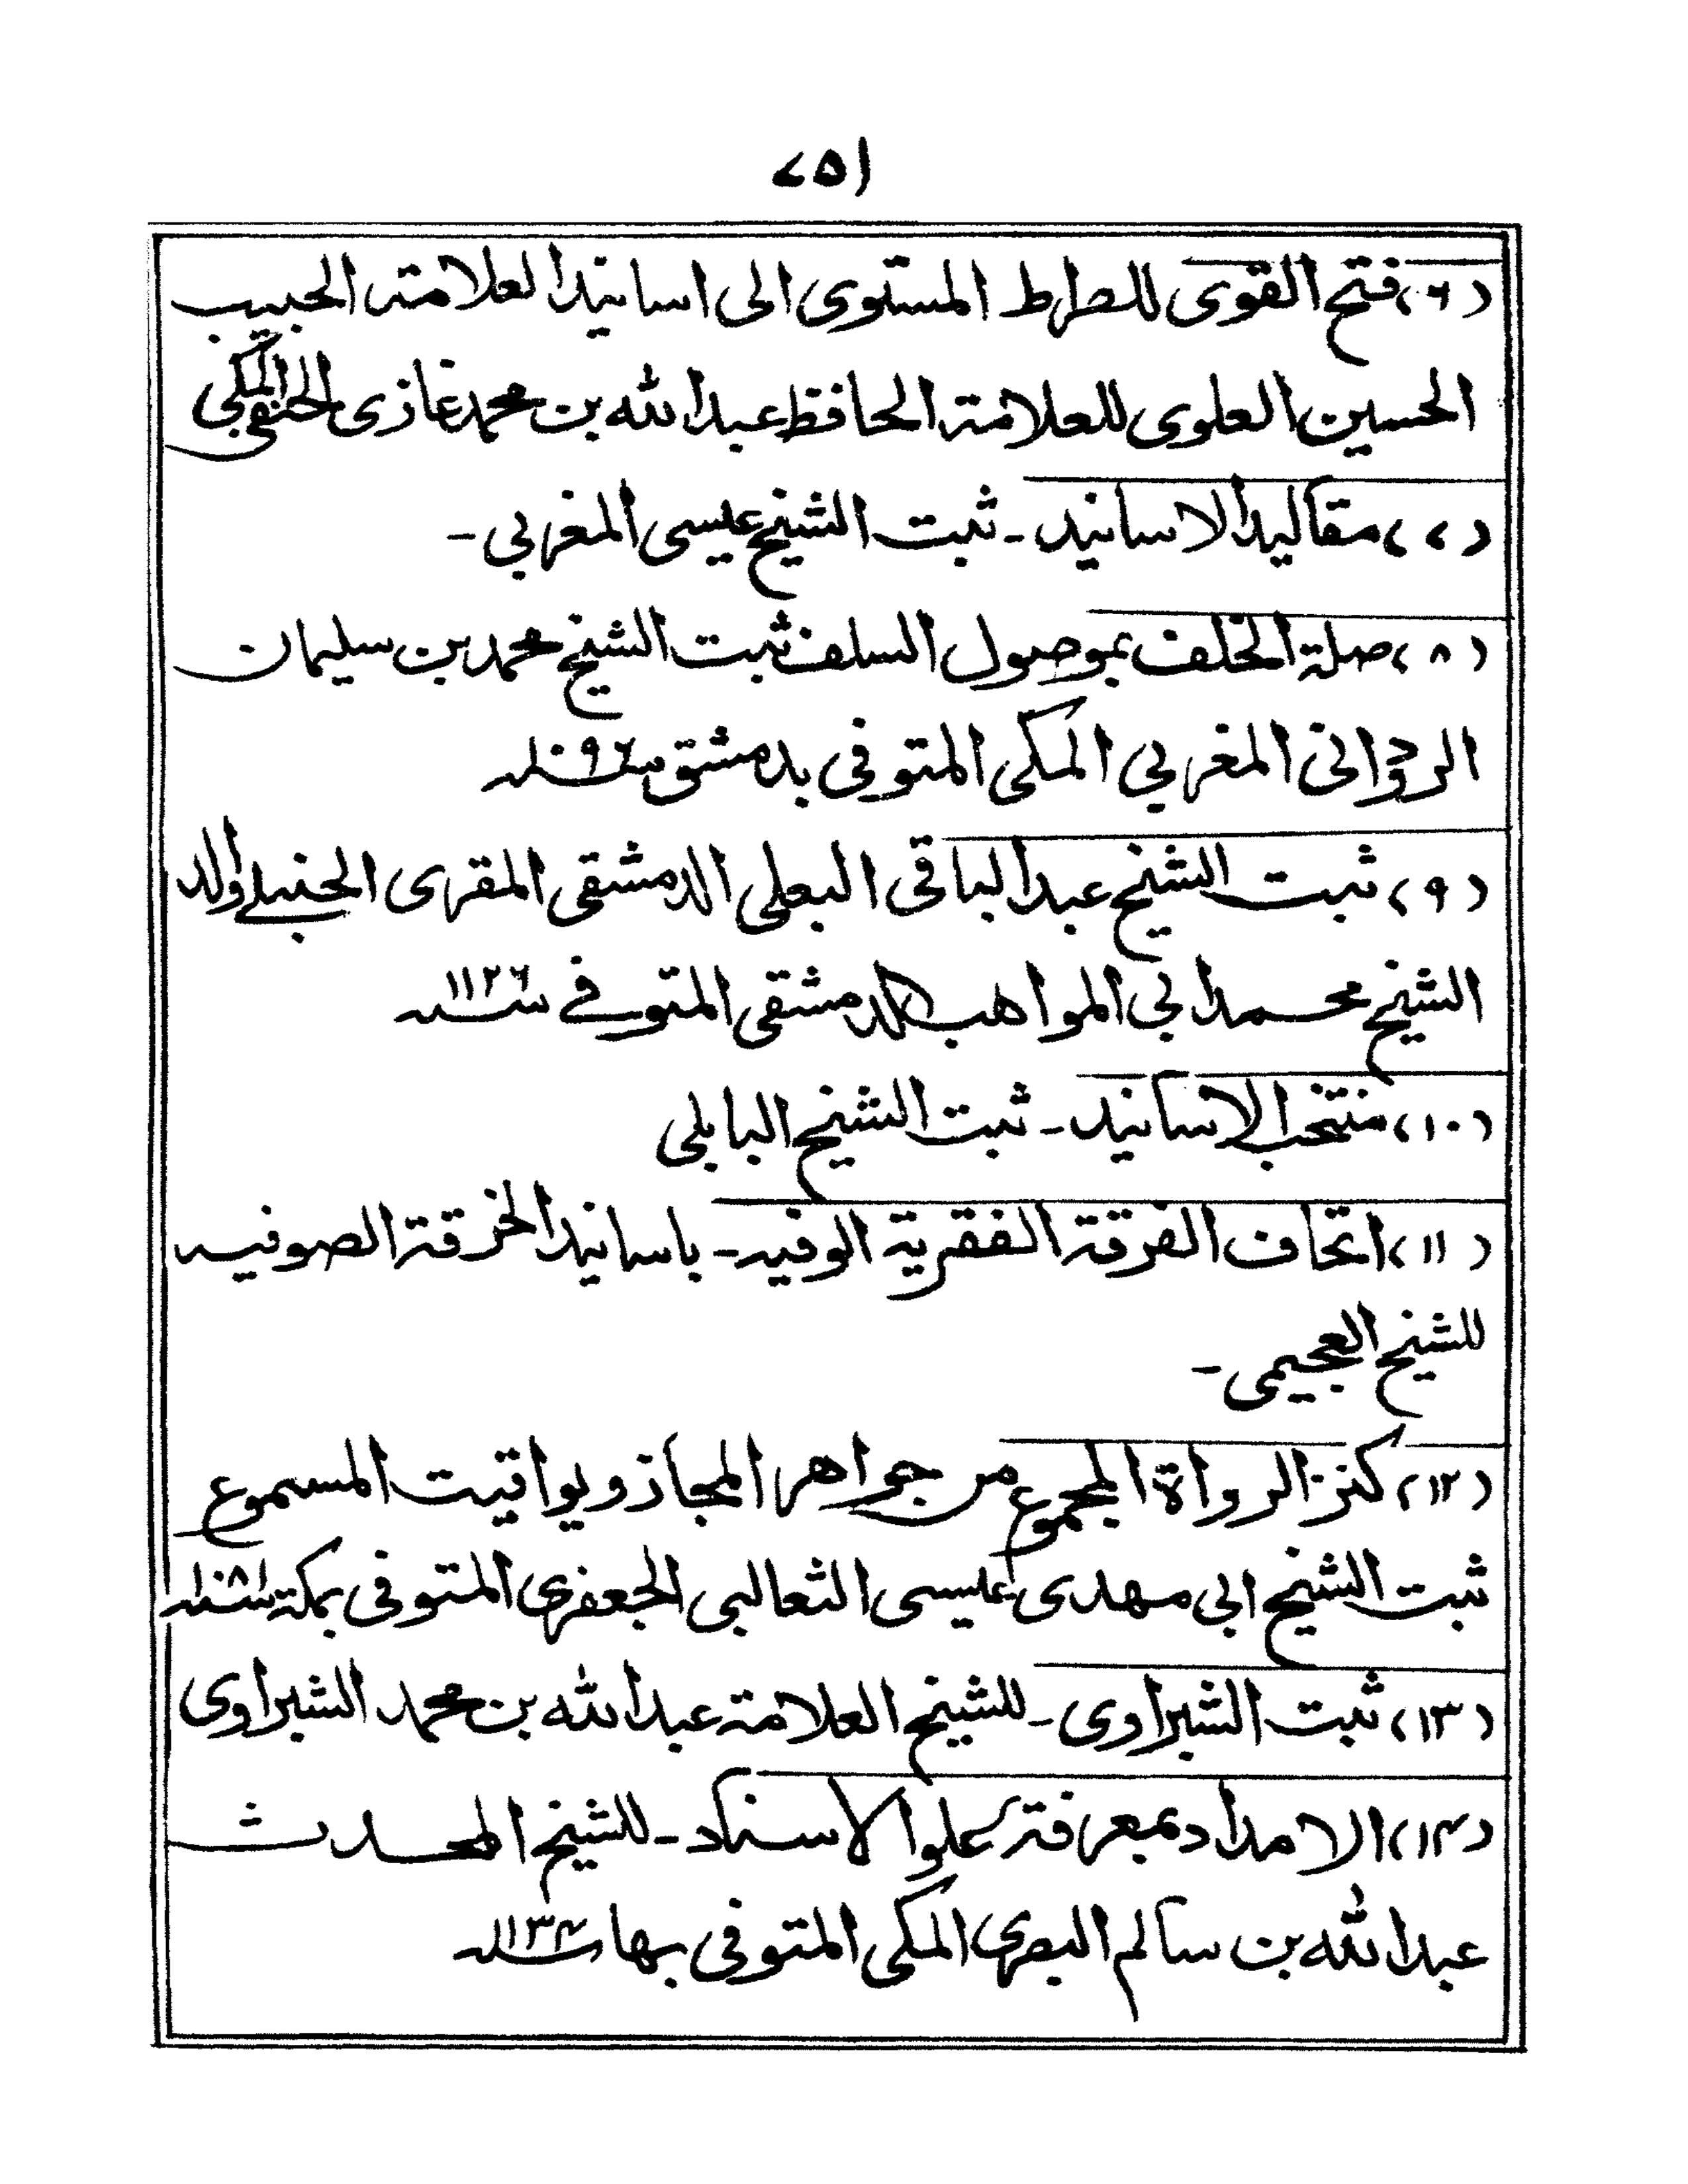 ۷۵۱
(۶) فتح القوى للصراط المستوى الى اسانيد العلامة الحبيب
الحسين العلوى للعلامة الحافظ عبد الله بن محمد غازى الحنفى المكى
(۷) مقاليد الاسانيد - ثبت الشيخ عيسى المغربي -
(۸) صلة الخلف بموصول السلف ثبت الشيخ محمد بن سليمان
الردوانى المغربي المكى المتوفى بدمشق سنة
(۹) ثبت الشيخ عبد الباقى البعلى الدمشقى المقرى الحنبلے والد
الشيخ محمد ابي المواهب الدمشقى المتوفے سنة ۱۱۲۶
(۱۰) منتخب الاسانيد - ثبت الشيخ البابلى
(۱۱) اتحاف الفرقة الفقرية الوفيه - باسانيد الخرقة الصوفيه
للشيخ العجيمى -
(۱۲) كنز الرواة المجموع من جواهر المجاز ويواقيت المسموع
ثبت الشيخ ابي مهدى عيسى الثعالبى الجعفرى المتوفى بمكة سنة
(۱۳) ثبت الشبراوى - للشيخ العلامة عبد الله بن محمد الشبراوى
(۱۴) الامداد بمعرفة علو الاسناد - للشيخ المحدث
عبد الله بن سالم البصرى المكى المتوفى بها سنة ۱۱۳۴